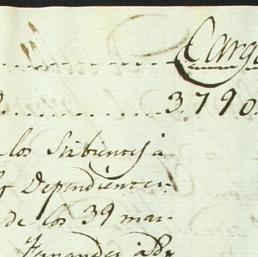 Carg
3790
los Sirbientes á
Dependientes
de los 39 mar
Fernandez